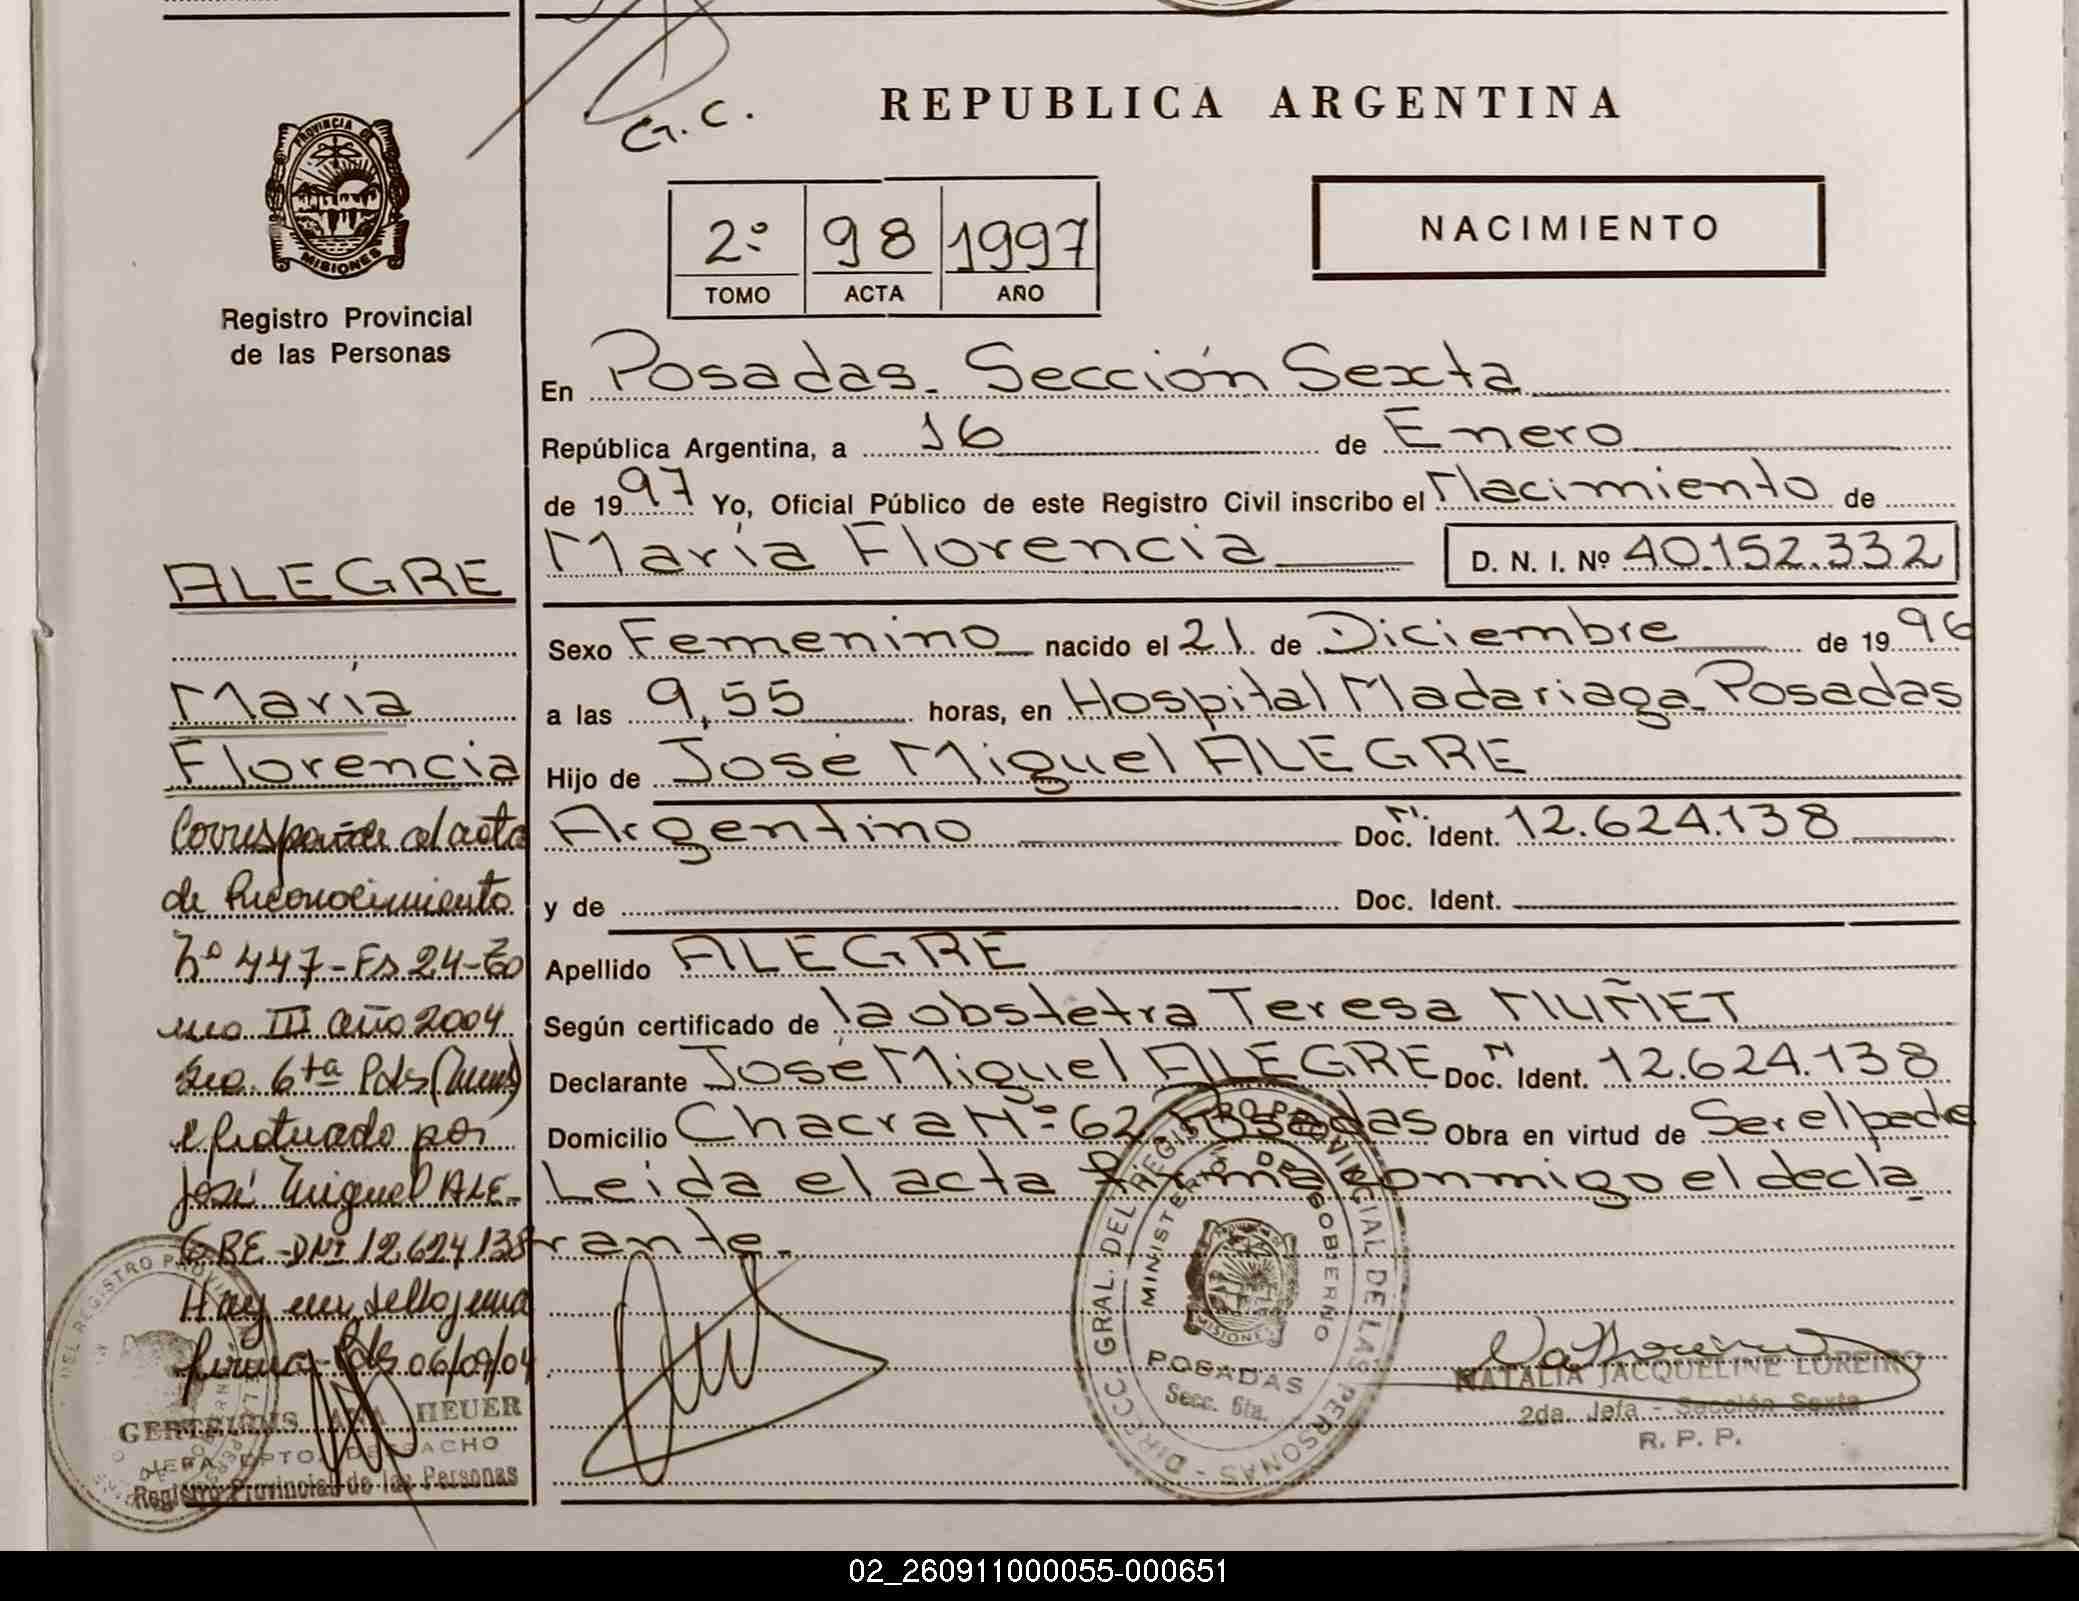 G. C.
REPUBLICA ARGENTINA
PROVINCIA DE
MISIONES
Registro Provincial
de las Personas
2º 98 1997
TOMO ACTA AÑO
NACIMIENTO
En Posadas. Sección Sexta
República Argentina, a 16 de Enero
de 1997 Yo, Oficial Público de este Registro Civil inscribo el Nacimiento de
María Florencia D. N. I. Nº 40.152.332
Sexo Femenino nacido el 21 de Diciembre de 1996
a las 9,55 horas, en Hospital Madariaga-Posadas
Hijo de José Miguel ALEGRE
Argentino Doc. N. Ident. 12.624.138
y de Doc. Ident.
Apellido ALEGRE
Según certificado de la obstetra Teresa MUÑET
Declarante José Miguel ALEGRE Doc. N Ident. 12.624.138
Domicilio Chacra Nº 62. Posadas Obra en virtud de Ser el padre
Leida el acta firma conmigo el decla
rante.
ALEGRE
María
Florencia
Corresponde al acta
de Reconocimiento
Nº 447-Fs 24-To
mo III año 2004
Sec. 6ta Pdas
efectuado por
José Miguel ALE-
GRE-DNI 12.624.138
Hay un sello y una
firma-Pdas 06/09/04
HEUER
JEFA DPTO. DESPACHO
Registro Provincial de las Personas
DIRECC. GRAL. DEL REGISTRO PROVINCIAL DE LAS PERSONAS
MINISTERIO DE GOBIERNO
MISIONES
POSADAS
Secc. 6ta.
NATALIA JACQUELINE LOREIRO
2da. Jefa - Sección Sexta
R. P. P.
02_260911000055-000651